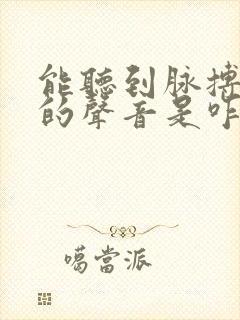 能聽到脉搏
的聲音是咋
噶當派